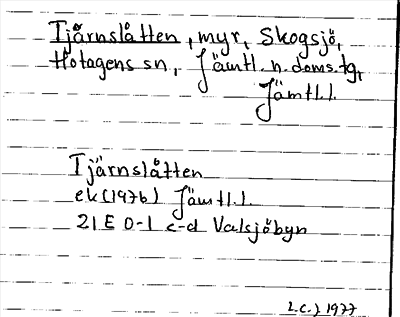 Tjärnslåtten, myr, Skogsjö,
Hotagens sn, Jämtl. n. doms. tg,
Jämtl.l.
Tjärnslåtten
ek (1976) Jämtl.l.
21E 0-1 c-d Valsjöbyn
L.C.J 1977